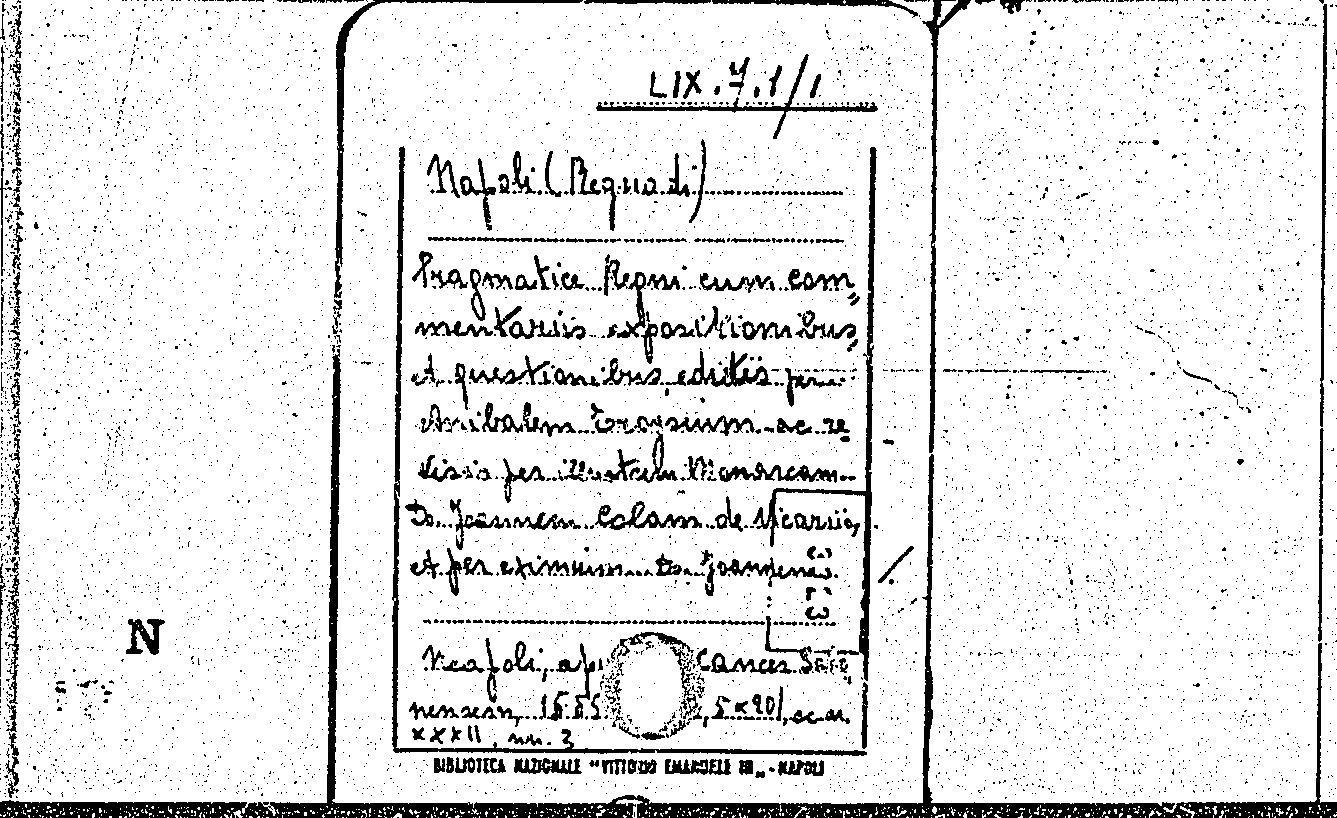 LIX.7.1/1
Napoli (Regno di)
Pragmatice Regni cum com=
mentariis expositionibus,
et questionibus editis per
Anibalem Troysium ac re=
visis per illustrem Monarcam
D. Joannem Colam de Vicariis,
et per eximium D. Joannem
Neapoli, ap cances Sa
nensem, 155 , 5×20, cc.
XXXII, nn. 2
BIBLIOTECA NAZIONALE "VITTORIO EMANUELE III„ - NAPOLI
N